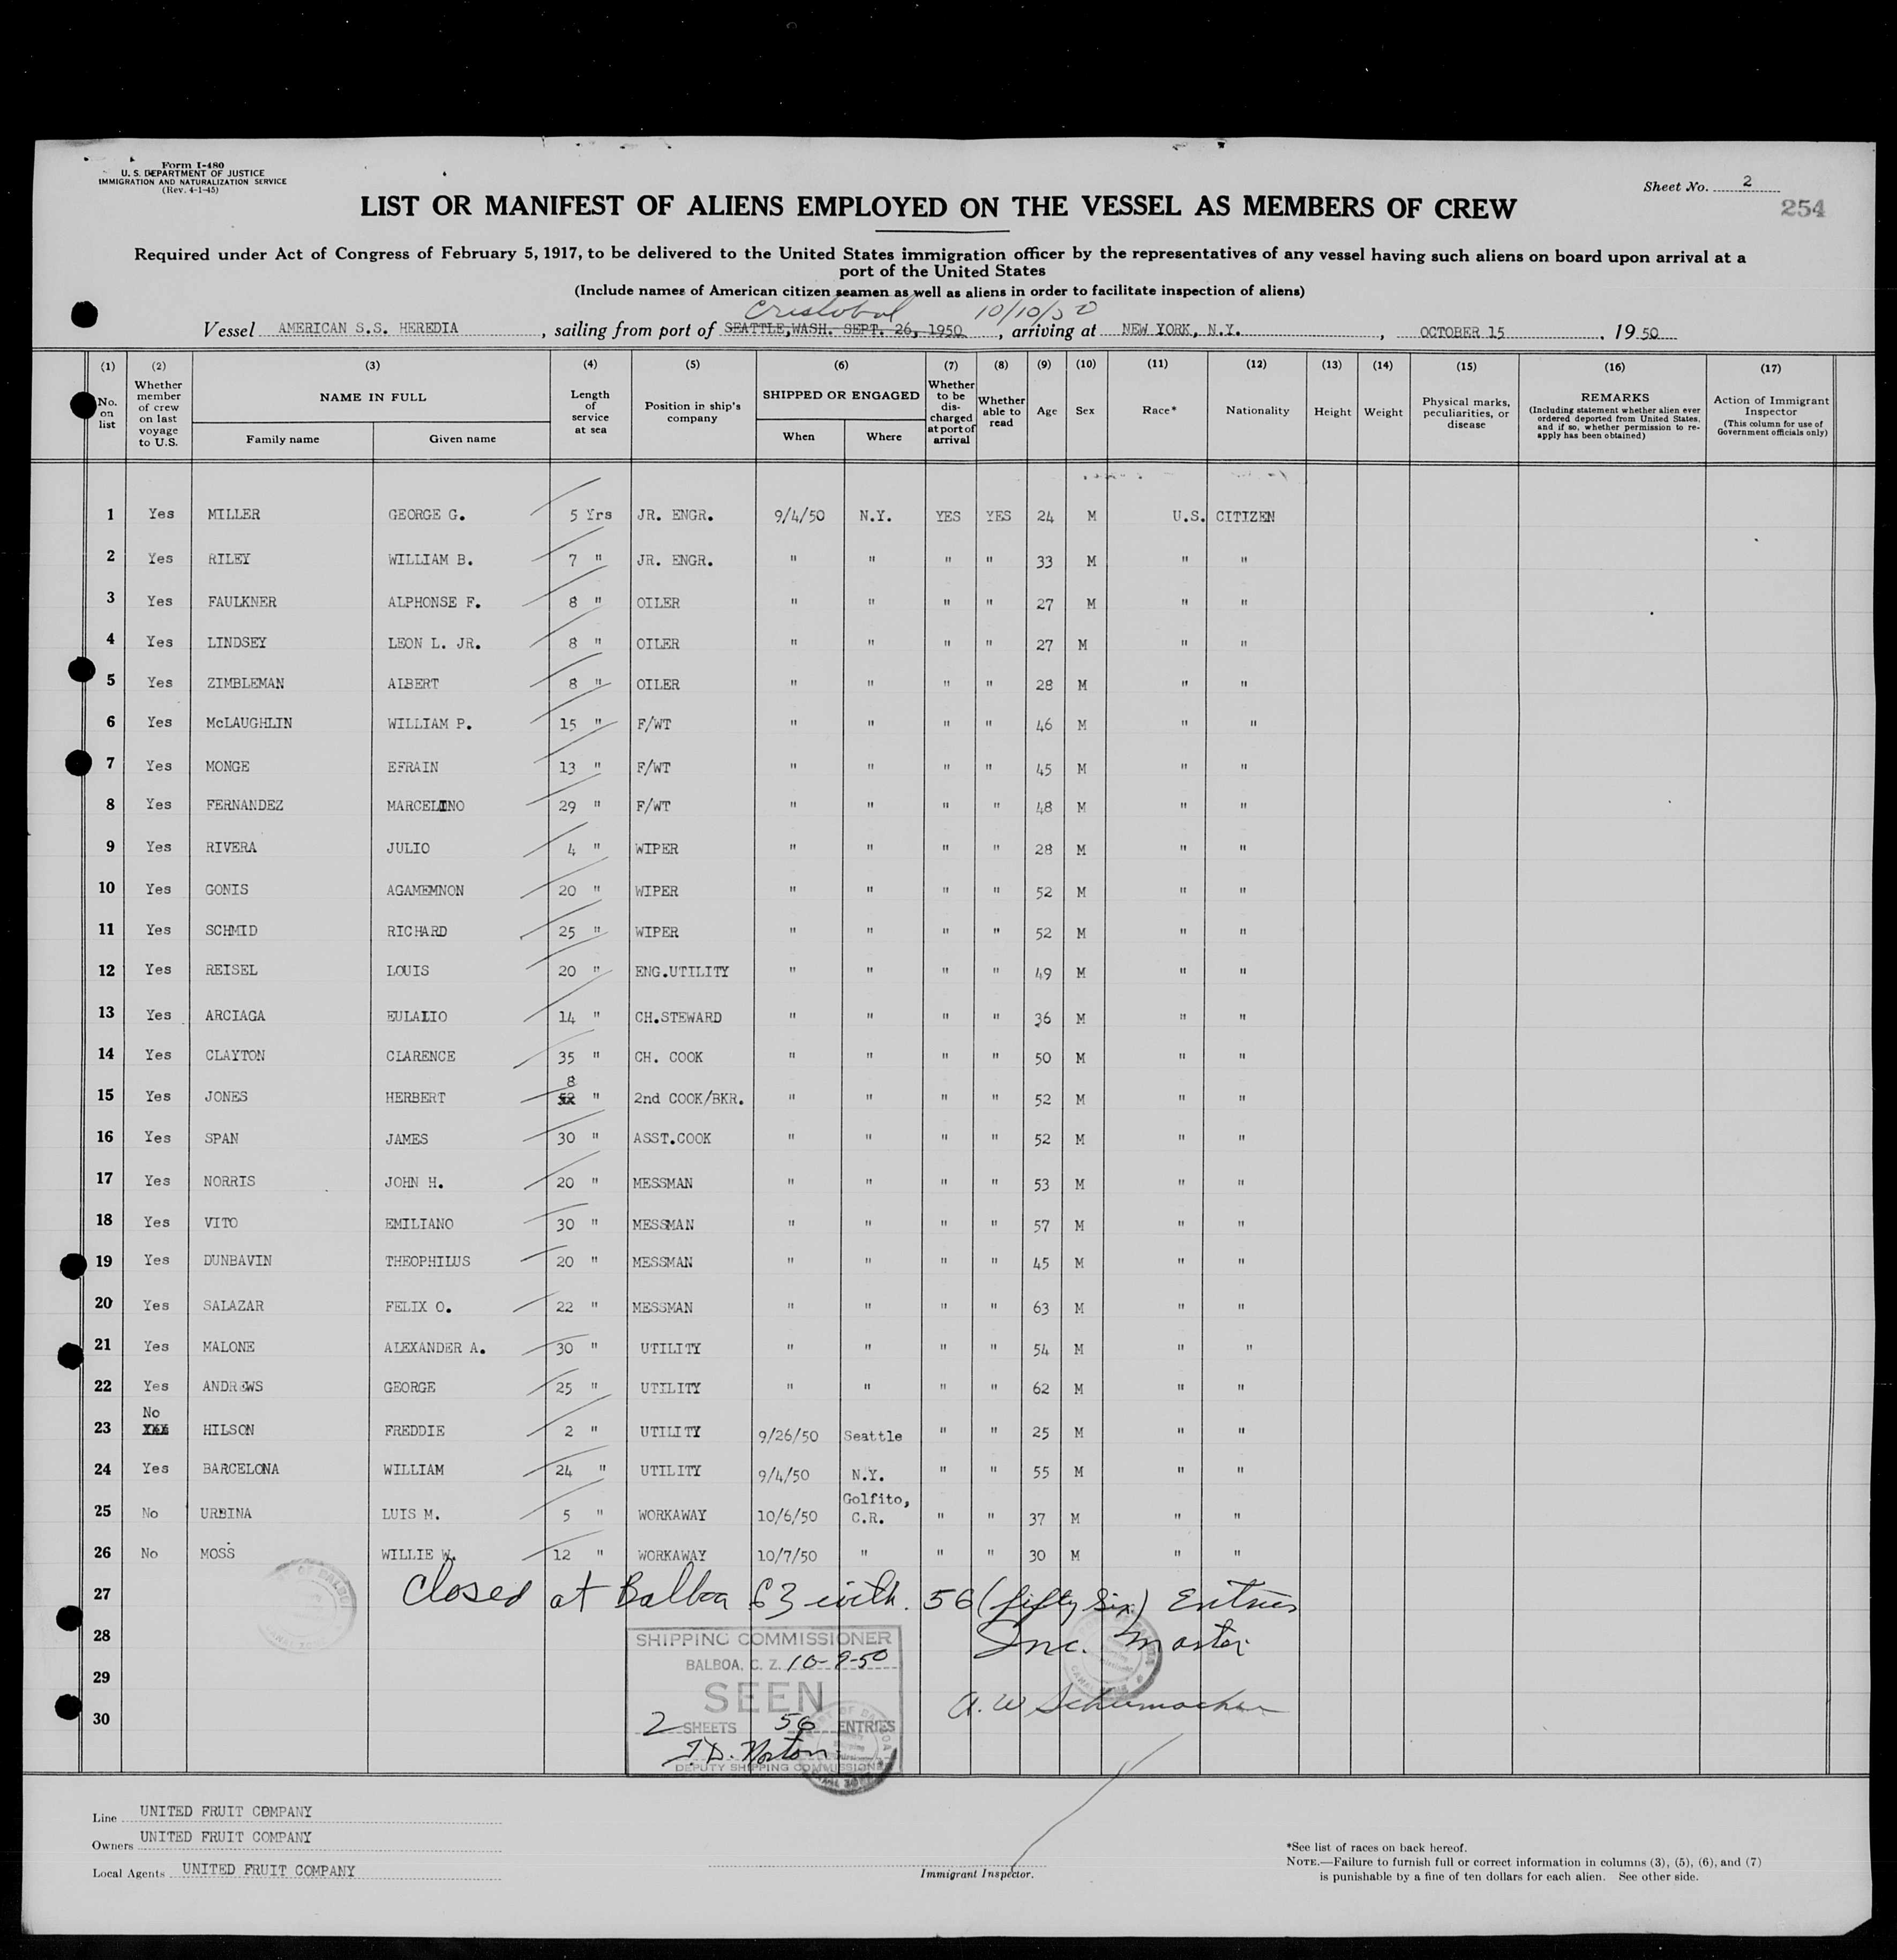 Form I-480
U. S. DEPARTMENT OF JUSTICE
IMMIGRATION AND NATURALIZATION SERVICE
(Rev. 4-1-45)
Sheet No. 2
254
LIST OR MANIFEST OF ALIENS EMPLOYED ON THE VESSEL AS MEMBERS OF CREW
Required under Act of Congress of February 5, 1917, to be delivered to the United States immigration officer by the representatives of any vessel having such aliens on board upon arrival at a
port of the United States
(Include names of American citizen seamen as well as aliens in order to facilitate inspection of aliens)
Cristobal 10/10/50
Vessel AMERICAN S.S. HEREDIA, sailing from port of SEATTLE,WASH. SEPT. 26, 1950, arriving at NEW YORK, N.Y., OCTOBER 15, 1950
(1) No. on list
(2) Whether member of crew on last voyage to U.S.
(3) NAME IN FULL Family name Given name
(4) Length of service at sea
(5) Position in ship's company
(6) SHIPPED OR ENGAGED When Where
(7) Whether to be discharged at port of arrival
(8) Whether able to read
(9) Age
(10) Sex
(11) Race*
(12) Nationality
(13) Height
(14) Weight
(15) Physical marks, peculiarities, or disease
(16) REMARKS (Including statement whether alien ever ordered deported from United States, and if so, whether permission to re-apply has been obtained)
(17) Action of Immigrant Inspector (This column for use of Government officials only)
1 Yes MILLER GEORGE G. 5 Yrs JR. ENGR. 9/4/50 N.Y. YES YES 24 M U.S. CITIZEN
2 Yes RILEY WILLIAM B. 7 " JR. ENGR. " " " " 33 M " "
3 Yes FAULKNER ALPHONSE F. 8 " OILER " " " " 27 M " "
4 Yes LINDSEY LEON L. JR. 8 " OILER " " " " 27 M " "
5 Yes ZIMBLEMAN ALBERT 8 " OILER " " " " 28 M " "
6 Yes McLAUGHLIN WILLIAM P. 15 " F/WT " " " " 46 M " "
7 Yes MONGE EFRAIN 13 " F/WT " " " " 45 M " "
8 Yes FERNANDEZ MARCELINO 29 " F/WT " " " " 48 M " "
9 Yes RIVERA JULIO 4 " WIPER " " " " 28 M " "
10 Yes GONIS AGAMEMNON 20 " WIPER " " " " 52 M " "
11 Yes SCHMID RICHARD 25 " WIPER " " " " 52 M " "
12 Yes REISEL LOUIS 20 " ENG.UTILITY " " " " 49 M " "
13 Yes ARCIAGA EULALIO 14 " CH.STEWARD " " " " 36 M " "
14 Yes CLAYTON CLARENCE 35 " CH. COOK " " " " 50 M " "
15 Yes JONES HERBERT 8 " 2nd COOK/BKR. " " " " 52 M " "
16 Yes SPAN JAMES 30 " ASST.COOK " " " " 52 M " "
17 Yes NORRIS JOHN H. 20 " MESSMAN " " " " 53 M " "
18 Yes VITO EMILIANO 30 " MESSMAN " " " " 57 M " "
19 Yes DUNBAVIN THEOPHILUS 20 " MESSMAN " " " " 45 M " "
20 Yes SALAZAR FELIX O. 22 " MESSMAN " " " " 63 M " "
21 Yes MALONE ALEXANDER A. 30 " UTILITY " " " " 54 M " "
22 Yes ANDREWS GEORGE 25 " UTILITY " " " " 62 M " "
23 No HILSON FREDDIE 2 " UTILITY 9/26/50 Seattle " " 25 M " "
24 Yes BARCELONA WILLIAM 24 " UTILITY 9/4/50 N.Y. " " 55 M " "
25 No URBINA LUIS M. 5 " WORKAWAY 10/6/50 Golfito, C.R. " " 37 M " "
26 No MOSS WILLIE W. 12 " WORKAWAY 10/7/50 " " " 30 M " "
27 Closed at Balboa C3 with. 56 (fifty Six) Entries
28 Inc. Master
29
30
SHIPPING COMMISSIONER
BALBOA, C. Z. 10-9-50
SEEN
2 SHEETS 56 ENTRIES
DEPUTY SHIPPING COMMISSIONER
A. W Schumacher
Line UNITED FRUIT COMPANY
Owners UNITED FRUIT COMPANY
Local Agents UNITED FRUIT COMPANY
Immigrant Inspector.
*See list of races on back hereof.
NOTE.—Failure to furnish full or correct information in columns (3), (5), (6), and (7)
is punishable by a fine of ten dollars for each alien. See other side.